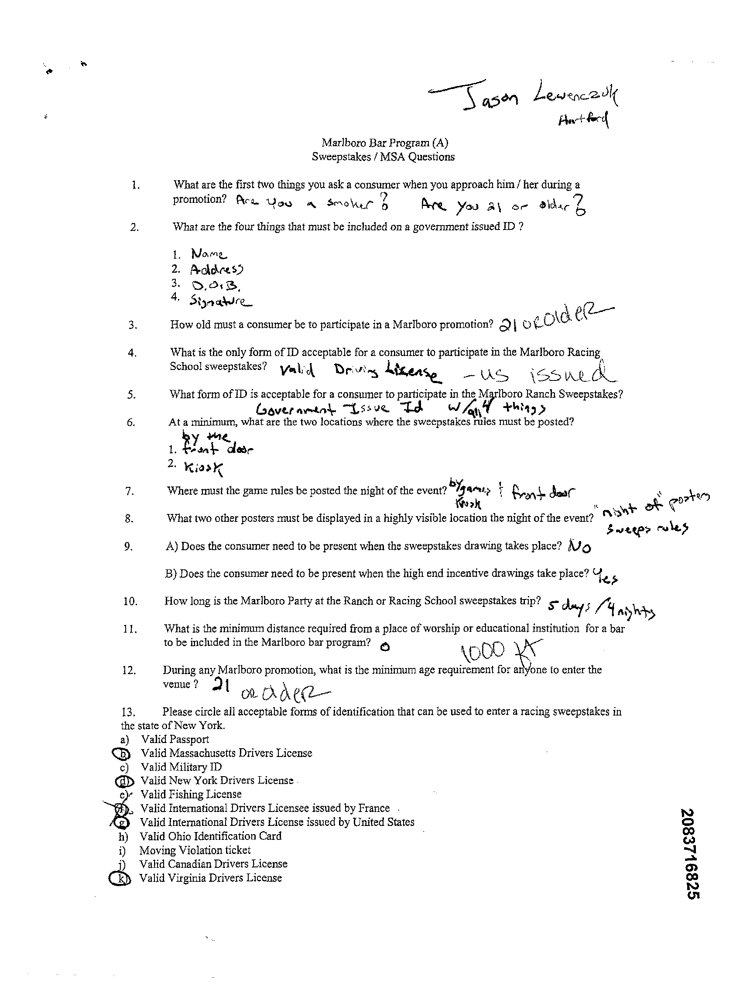 Jason Lewenczuk
Hartford
Marlboro Bar Program (A)
Sweepstakes / MSA Questions
1. What are the first two things you ask a consumer when you approach him / her during a
promotion? Are you a smoker? Are you 21 or older?
2. What are the four things that must be included on a government issued ID ?
1. Name
2. Address
3. D.O.B.
4. Signature
3. How old must a consumer be to participate in a Marlboro promotion? 21 or older
4. What is the only form of ID acceptable for a consumer to participate in the Marlboro Racing
School sweepstakes? Valid Driving License - US issued
5. What form of ID is acceptable for a consumer to participate in the Marlboro Ranch Sweepstakes?
Government Issue Id w/all 4 things
6. At a minimum, what are the two locations where the sweepstakes rules must be posted?
by the
1. front door
2. Kiosk
7. Where must the game rules be posted the night of the event? by games & front door
Kiosk
8. What two other posters must be displayed in a highly visible location the night of the event? "night of" posters
sweeps rules
9. A) Does the consumer need to be present when the sweepstakes drawing takes place? No
B) Does the consumer need to be present when the high end incentive drawings take place? Yes
10. How long is the Marlboro Party at the Ranch or Racing School sweepstakes trip? 5 days / 4 nights
11. What is the minimum distance required from a place of worship or educational institution for a bar
to be included in the Marlboro bar program? 0 1000 ft
12. During any Marlboro promotion, what is the minimum age requirement for anyone to enter the
venue ? 21 or older
13. Please circle all acceptable forms of identification that can be used to enter a racing sweepstakes in
the state of New York.
a) Valid Passport
b) Valid Massachusetts Drivers License
c) Valid Military ID
d) Valid New York Drivers License
e) Valid Fishing License
f) Valid International Drivers Licensee issued by France
g) Valid International Drivers License issued by United States
h) Valid Ohio Identification Card
i) Moving Violation ticket
j) Valid Canadian Drivers License
k) Valid Virginia Drivers License
2083716825